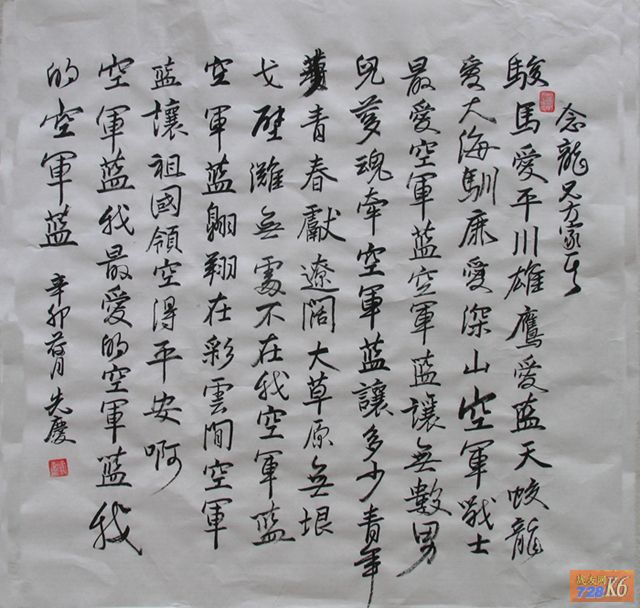 念龍兄方家正
駿馬愛平川雄鷹愛藍天蛟龍
愛大海馴鹿愛深山空軍戰士
最愛空軍藍空軍藍讓無數男
兒夢魂牽空軍藍讓多少青年
青春獻遼闊大草原無垠
戈壁灘無處不在我空軍藍
空軍藍翱翔在彩雲間空軍
藍讓祖國領空得平安啊
空軍藍我最愛的空軍藍我
的空軍藍
辛卯荷月 先慶
战友网
728K6